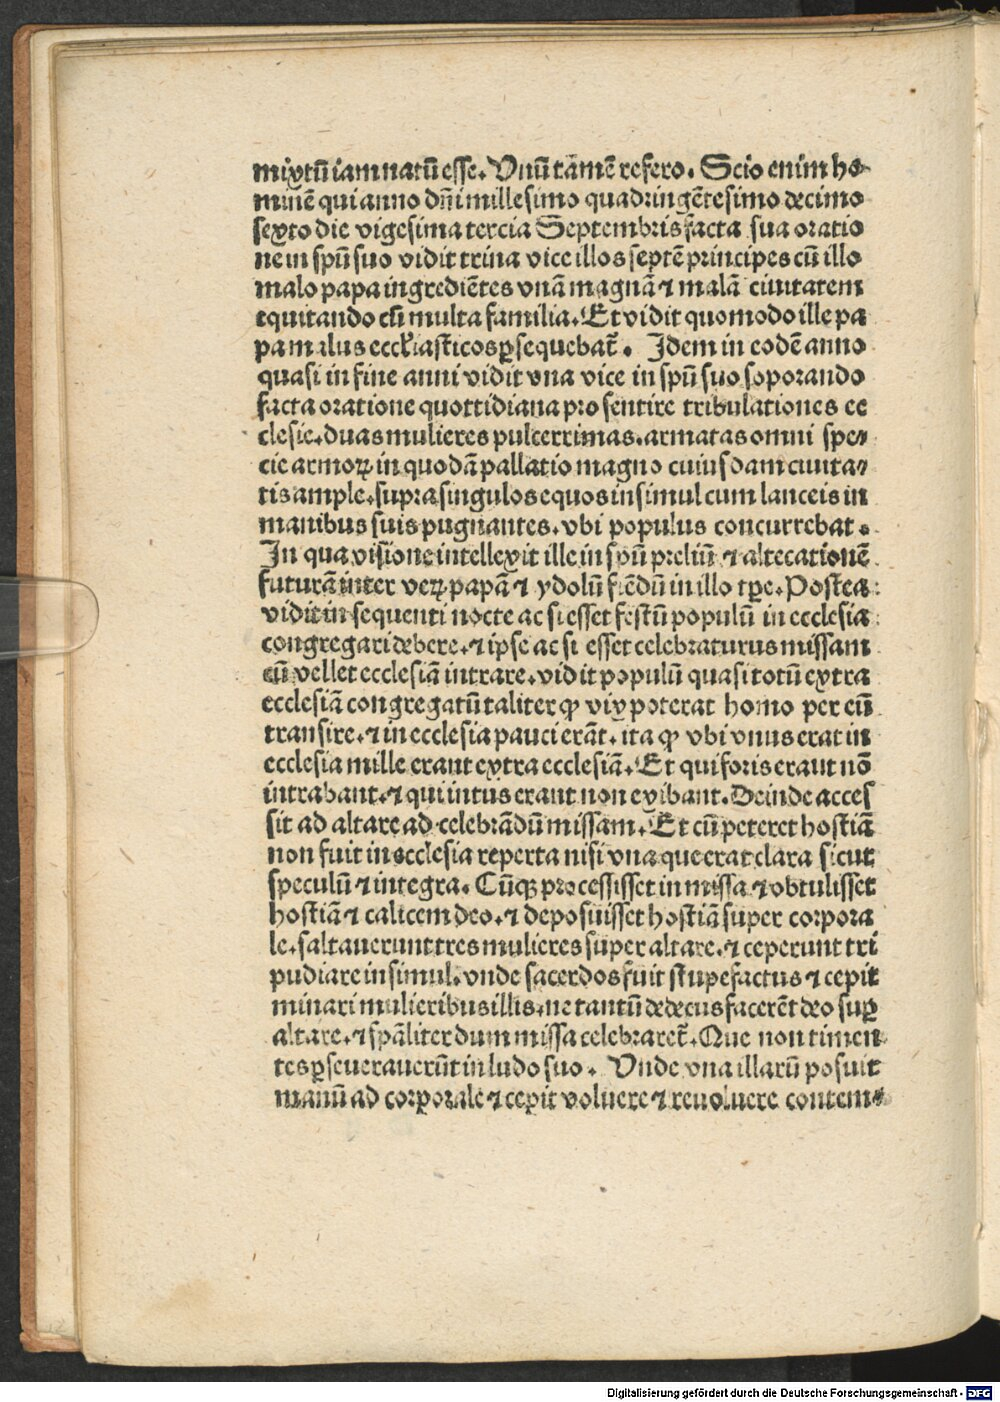 mixtū iam natū esse. Vnū tamē refero. Scio enim ho-
minē qui anno dn̄i millesimo quadringētesimo decimo
sexto die vigesima tercia Septembris facta sua oratio
ne in spū suo vidit trina vice illos septē principes cū illo
malo papa ingrediētes vnā magnā ⁊ malā ciuitatem
equitando cū multa familia. Et vidit quomodo ille pa
pa malus eccl̓iasticos ꝑsequebat̄. Idem in eodē anno
quasi in fine anni vidit vna vice in spū suo soporando
facta oratione quottidiana pro sentire tribulationes ec
clesie. duas mulieres pulcerrimas. armatas omni spe-
cie armoꝝ in quodā pallatio magno cuiusdam ciuita-
tis ample. supra singulos equos insimul cum lanceis in
manibus suis pugnantes. vbi populus concurrebat.
In qua visione intellexit ille in spū preliū ⁊ altecationē
futurā inter veꝝ papā ⁊ ydolū fiēdū in illo tꝑe. Postea
vidit in sequenti nocte ac si esset festū populū in ecclesia
congregari debere. ⁊ ipse ac si esset celebraturus missam
cū vellet ecclesiā intrare. vidit populū quasi totū extra
ecclesiā congregatū taliter ꝙ vix poterat homo per eū
transire. ⁊ in ecclesia pauci erāt. ita ꝙ vbi vnus erat in
ecclesia mille erant extra ecclesiā. Et qui foris erant nō
intrabant. ⁊ qui intus erant non exibant. Deinde acces
sit ad altare ad celebrādū missam. Et cū peteret hostiā
non fuit in ecclesia reperta nisi vna que erat clara sicut
speculū ⁊ integra. Cūqꝫ processisset in missa ⁊ obtulisset
hostiā ⁊ calicem deo. ⁊ deposuisset hostiā super corpora
le. saltauerunt tres mulieres super altare. ⁊ ceperunt tri
pudiare insimul. vnde sacerdos fuit stupefactus ⁊ cepit
minari mulieribus illis. ne tantū dedecus facerēt deo suꝑ
altare. ⁊ spāliter dum missa celebraret̄. Que non timen
tes ꝑseuerauerūt in ludo suo. Vnde vna illarū posuit
manū ad corporale ⁊ cepit voluere ⁊ reuoluere contem-
Digitalisierung gefördert durch die Deutsche Forschungsgemeinschaft - DFG